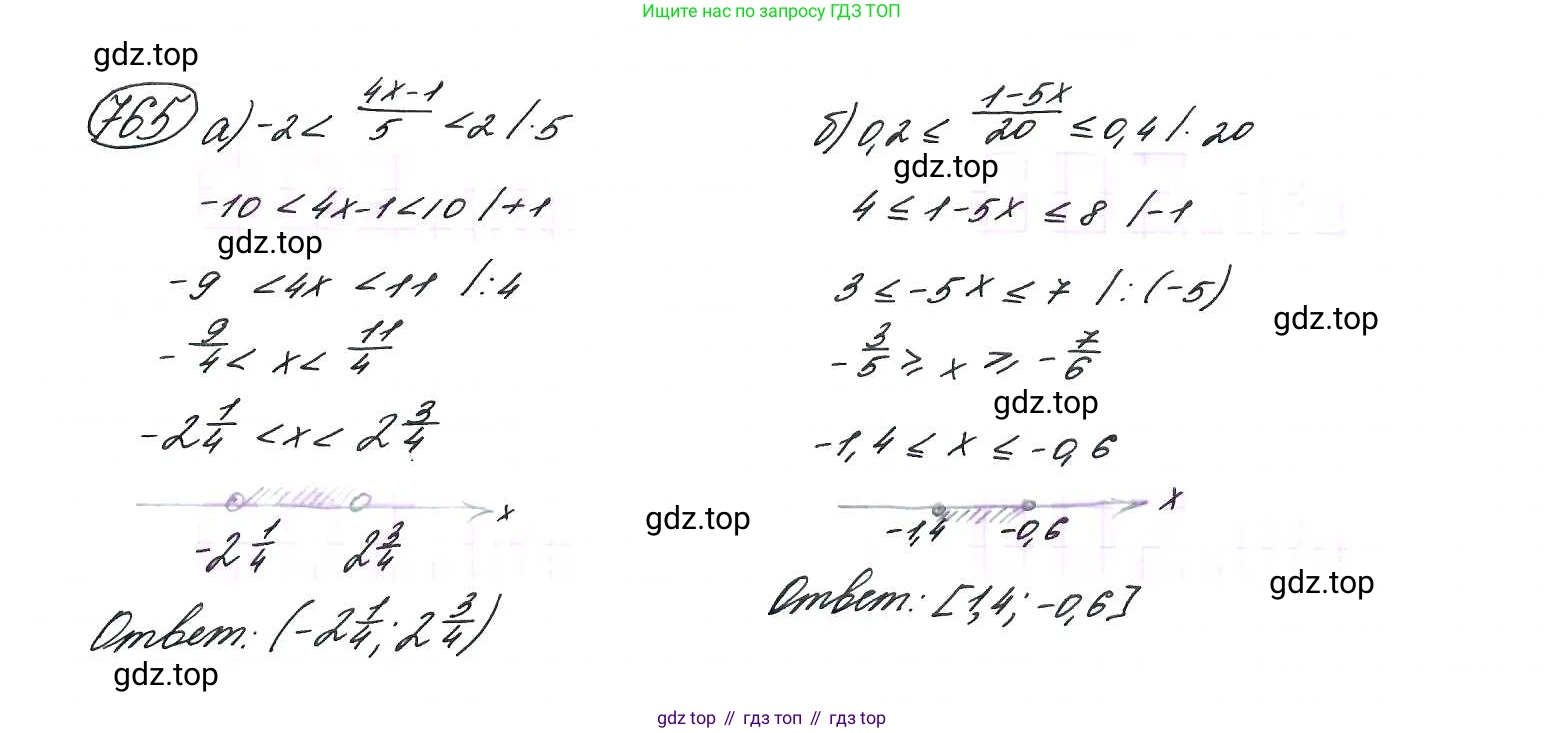 Ищите нас по запросу ГДЗ ТОП
gdz.top
765 а) -2 < \frac{4x-1}{5} < 2 / ·5
-10 < 4x-1 < 10 / +1
gdz.top
-9 < 4x < 11 / :4
-\frac{9}{4} < x < \frac{11}{4}
-2\frac{1}{4} < x < 2\frac{3}{4}
x
-2\frac{1}{4} 2\frac{3}{4}
Ответ: (-2\frac{1}{4}; 2\frac{3}{4})
gdz.top
б) 0,2 ≤ \frac{1-5x}{20} ≤ 0,4 / ·20
gdz.top
4 ≤ 1-5x ≤ 8 / -1
3 ≤ -5x ≤ 7 / :(-5)
gdz.top
-\frac{3}{5} ≥ x ≥ -\frac{7}{6}
gdz.top
-1,4 ≤ x ≤ -0,6
x
gdz.top
-1,4 -0,6
gdz.top
Ответ: [1,4; -0,6]
gdz top // гдз топ // gdz top